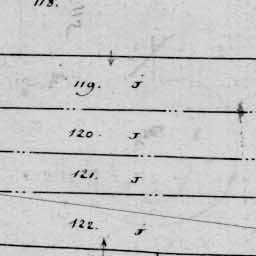 118.
119. J
120. J
121. J
122. J